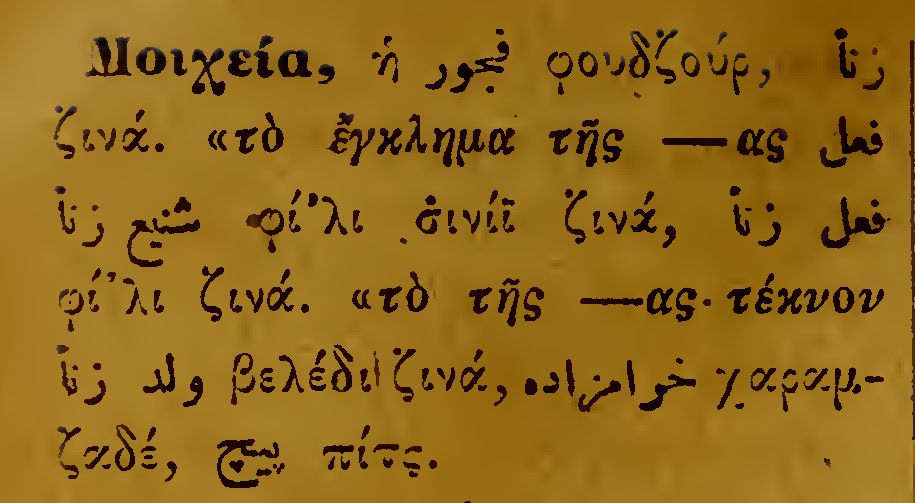 Μοιχεία, ἡ فجور φουδζούρ, زنا
ζινά. «τὸ ἔγκλημα τῆς —ας فعل
شنيع زنا φί᾽λι σ̇ινίϊ ζινά, فعل زنا
φί᾽λι ζινά. «τὸ τῆς —ας· τέκνον
ولد زنا βελέδι ζινά, خرامزاده χαραμ-
ζαδέ, پيچ πίτς.